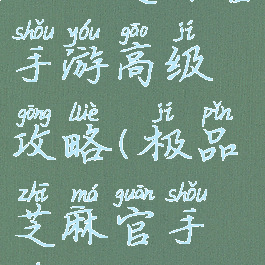 shǒu yóu gāo jí
手游高级
gōng lüè jí pǐn
攻略(极品
zhī má guān shǒu
芝麻官手